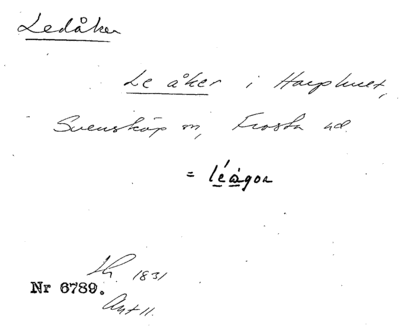 Ledåker
Le åker i Harphult,
Svensköp sn, Frosta hd.
= léågor
Sk. 1831
Nr 6789.
Ant 11.